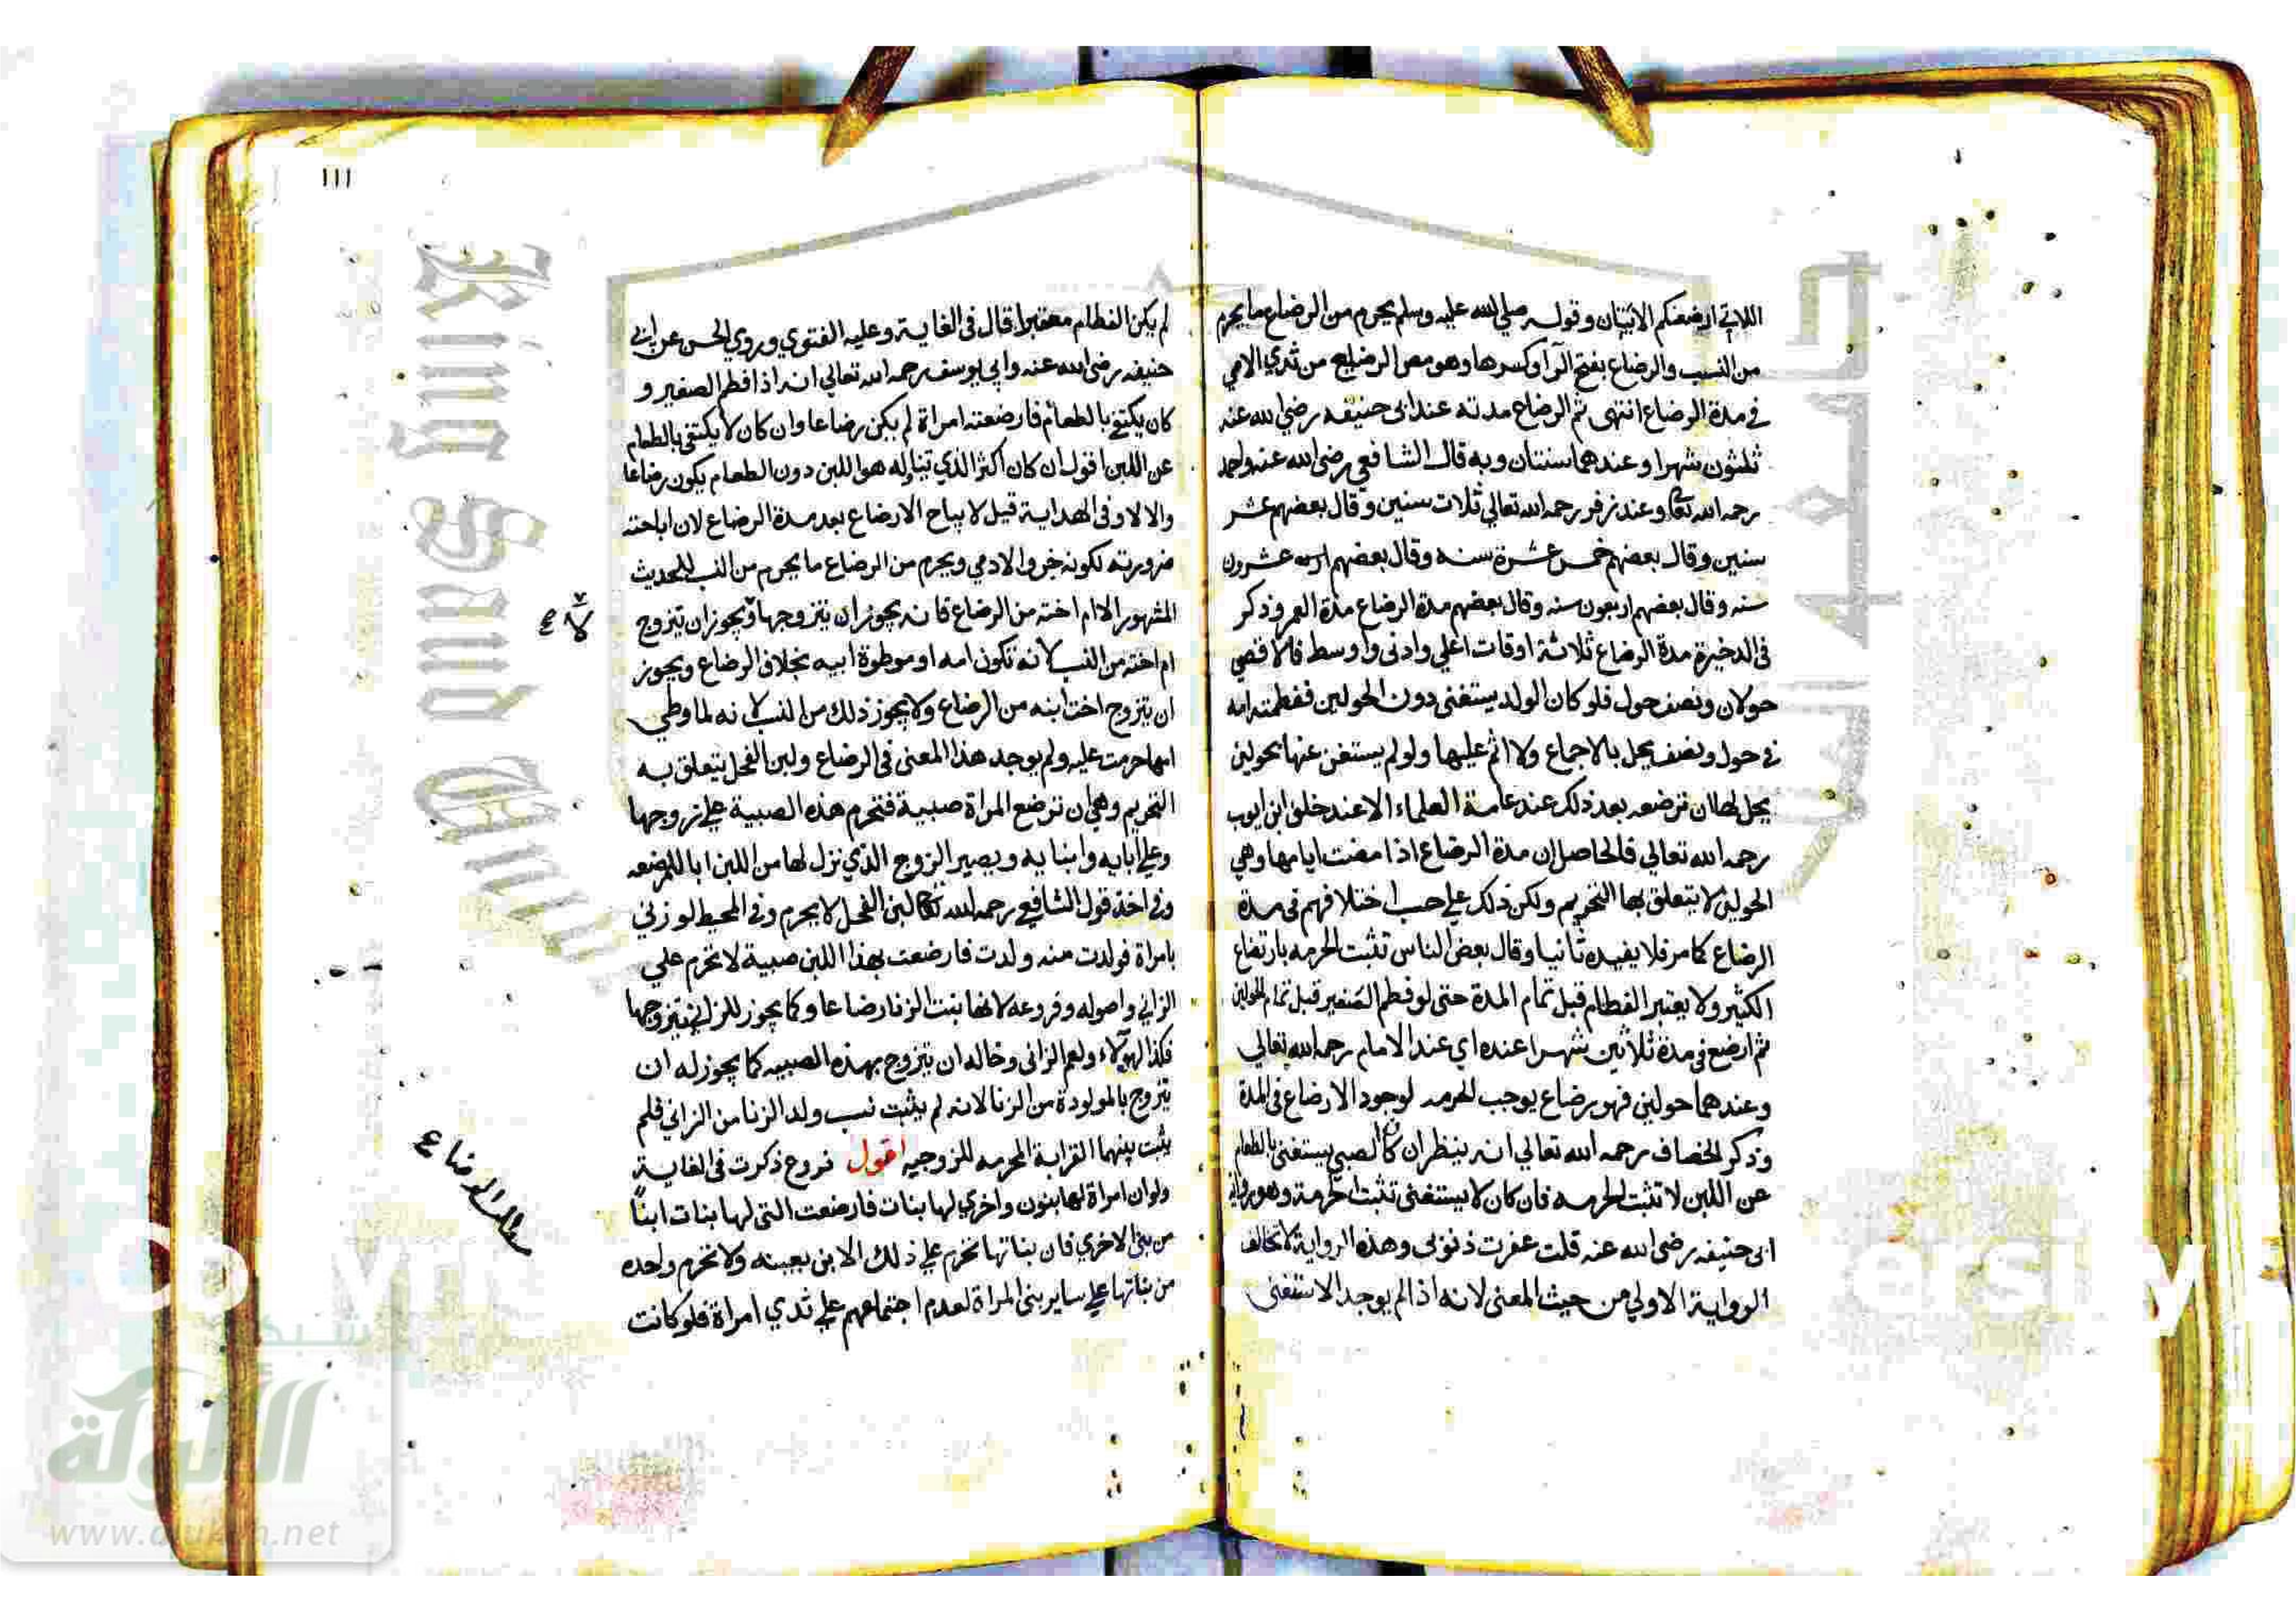 اللاتي ارضعنكم الايتان وقوله صلي الله عليه وسلم يحرم من الرضاع ما يحرم
من النسب والرضاع بفتح الرآ وكسرها وهو مص الرضيع من ثدي الادمي
في مدة الرضاع انتهي ثم الرضاع مدته عند ابى حنيفه رضي الله عنه
ثلثون شهرا وعندهما سنتان وبه قال الشافعي رضي الله عنه واحمد
رحمه الله تعالى وعند زفر رحمه الله تعالي ثلاث سنين وقال بعضهم عشر
سنين وقال بعضهم خمس عشرة سنه وقال بعضهم عشرون
سنه وقال بعضهم اربعون سنه وقال بعضهم مدة الرضاع مدة العمر وذكر
في الدخيرة مدة الرضاع ثلاثة اوقات اعلي وادنى واوسط فالاقصي
حولان ونصف حول فلو كان الولد يستغنى دون الحولين ففطمته امه
في حول ونصف يحل بالاجماع ولا اثم عليها ولو لم يستغن عنها بحولين
يحل لها ان ترضعه بعد ذلك عند عامة العلماء الا عند خلف ابن ايوب
رحمه الله تعالي فالحاصل ان مدة الرضاع اذا مضت ايامها وهي
الحولين لا يتعلق بها التحريم ولكن ذلك علي حسب اختلافهم في مدة
الرضاع كما مر فلا يفيده ثانيا وقال بعض الناس تثبت الحرمه بارتضاع
الكثير ولا يعتبر الفطام قبل تمام المدة حتى لو فطم الصغير قبل تمام الحولين
ثم ارضع في مدة ثلاثين شهرا عنده اي عند الامام رحمه الله تعالي
وعندهما حولين فهو رضاع يوجب الحرمه لوجود الارضاع في المدة
وذكر الخصاف رحمه الله تعالي انه ينظر ان كان الصبي يستغنى بالطعام
عن اللبن لا تثبت الحرمه فان كان لا يستغنى تثبت الحرمة وهو رواية
ابى حنيفه رضي الله عنه قلت غفرت ذنوبى وهذه الرواية لا تخالف
الرواية الاولي من حيث المعنى لانه اذا لم يوجد الاستغنى
١١١
لم يكن الفطام معتبرا قال في الغاية وعليه الفتوي وروي الحسن عن ابى
حنيفه رضي الله عنه وابي يوسف رحمه الله تعالي انه اذا فطم الصغير و
كان يكتفي بالطعام فارضعته امراة لم يكن رضاعا وان كان لا يكتفي بالطعام
عن اللبن اقول ان كان اكثر الذي تناوله هو اللبن دون الطعام يكون رضاعا
والا لا وفى الهداية قيل لا يباح الارضاع بعد مدة الرضاع لان اباحته
ضرورته لكونه جزو الادمي ويحرم من الرضاع ما يحرم من النسب للحديث
المشهور الا ام اخته من الرضاع فانه يجوز ان يتزوجها ويجوز ان يتزوج
ام اخته من النسب لانه تكون امه او موطوة ابيه بخلاف الرضاع ويجوز
ان يتزوج اخت ابنه من الرضاع ولا يجوز ذلك من النسب لانه لما وطي
امها حرمت عليه ولم يوجد هذا المعنى في الرضاع ولبن الفحل يتعلق به
التحريم وهي ان ترضع المراة صبية فتحرم هذه الصبية علي زوجها
وعلي ابايه وابنايه ويصير الزوج الذي نزل لها من اللبن ابا للمرضعه
وفي احد قول الشافعي رحمه الله تعالى لبن الفحل لا يحرم وفي المحيط لو زني
بامراة فولدت منه ولدت فارضعت بهذا اللبن صبية لا تحرم علي
الزاني واصوله وفروعه لانها بنت الزنا رضاعا وكما يجوز للزاني يتزوجها
فكذا لهولاء ولعم الزاني وخاله ان يتزوج بهذه الصبيه كما يجوز له ان
يتزوج بالمولودة من الزنا لانه لم يثبت نسب ولد الزنا من الزاني فلم
يثبت بينهما القرابة المحرمه للزوجيه اقول فروع ذكرت في الغاية
ولو ان امراة لها بنون واخري لها بنات فارضعت التى لها بنات ابنًا
من بنى الاخري فان بناتها تحرم علي ذلك الابن بعينه ولا تحرم واحده
من بناتها علي ساير بنى المراة لعدم اجتماعهم علي ثدي امراة فلو كانت
King Saud
جامعة الملك
شبكة
الألوكة
www.alukah.net